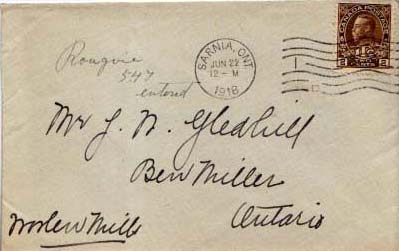 CANADA POSTAGE
2 CENTS 2
SARNIA, ONT
JUN 22
12 - M
1918
547
entered
Mr J. N. Gledhill
Ben Miller
Ontario
Woolen Mills